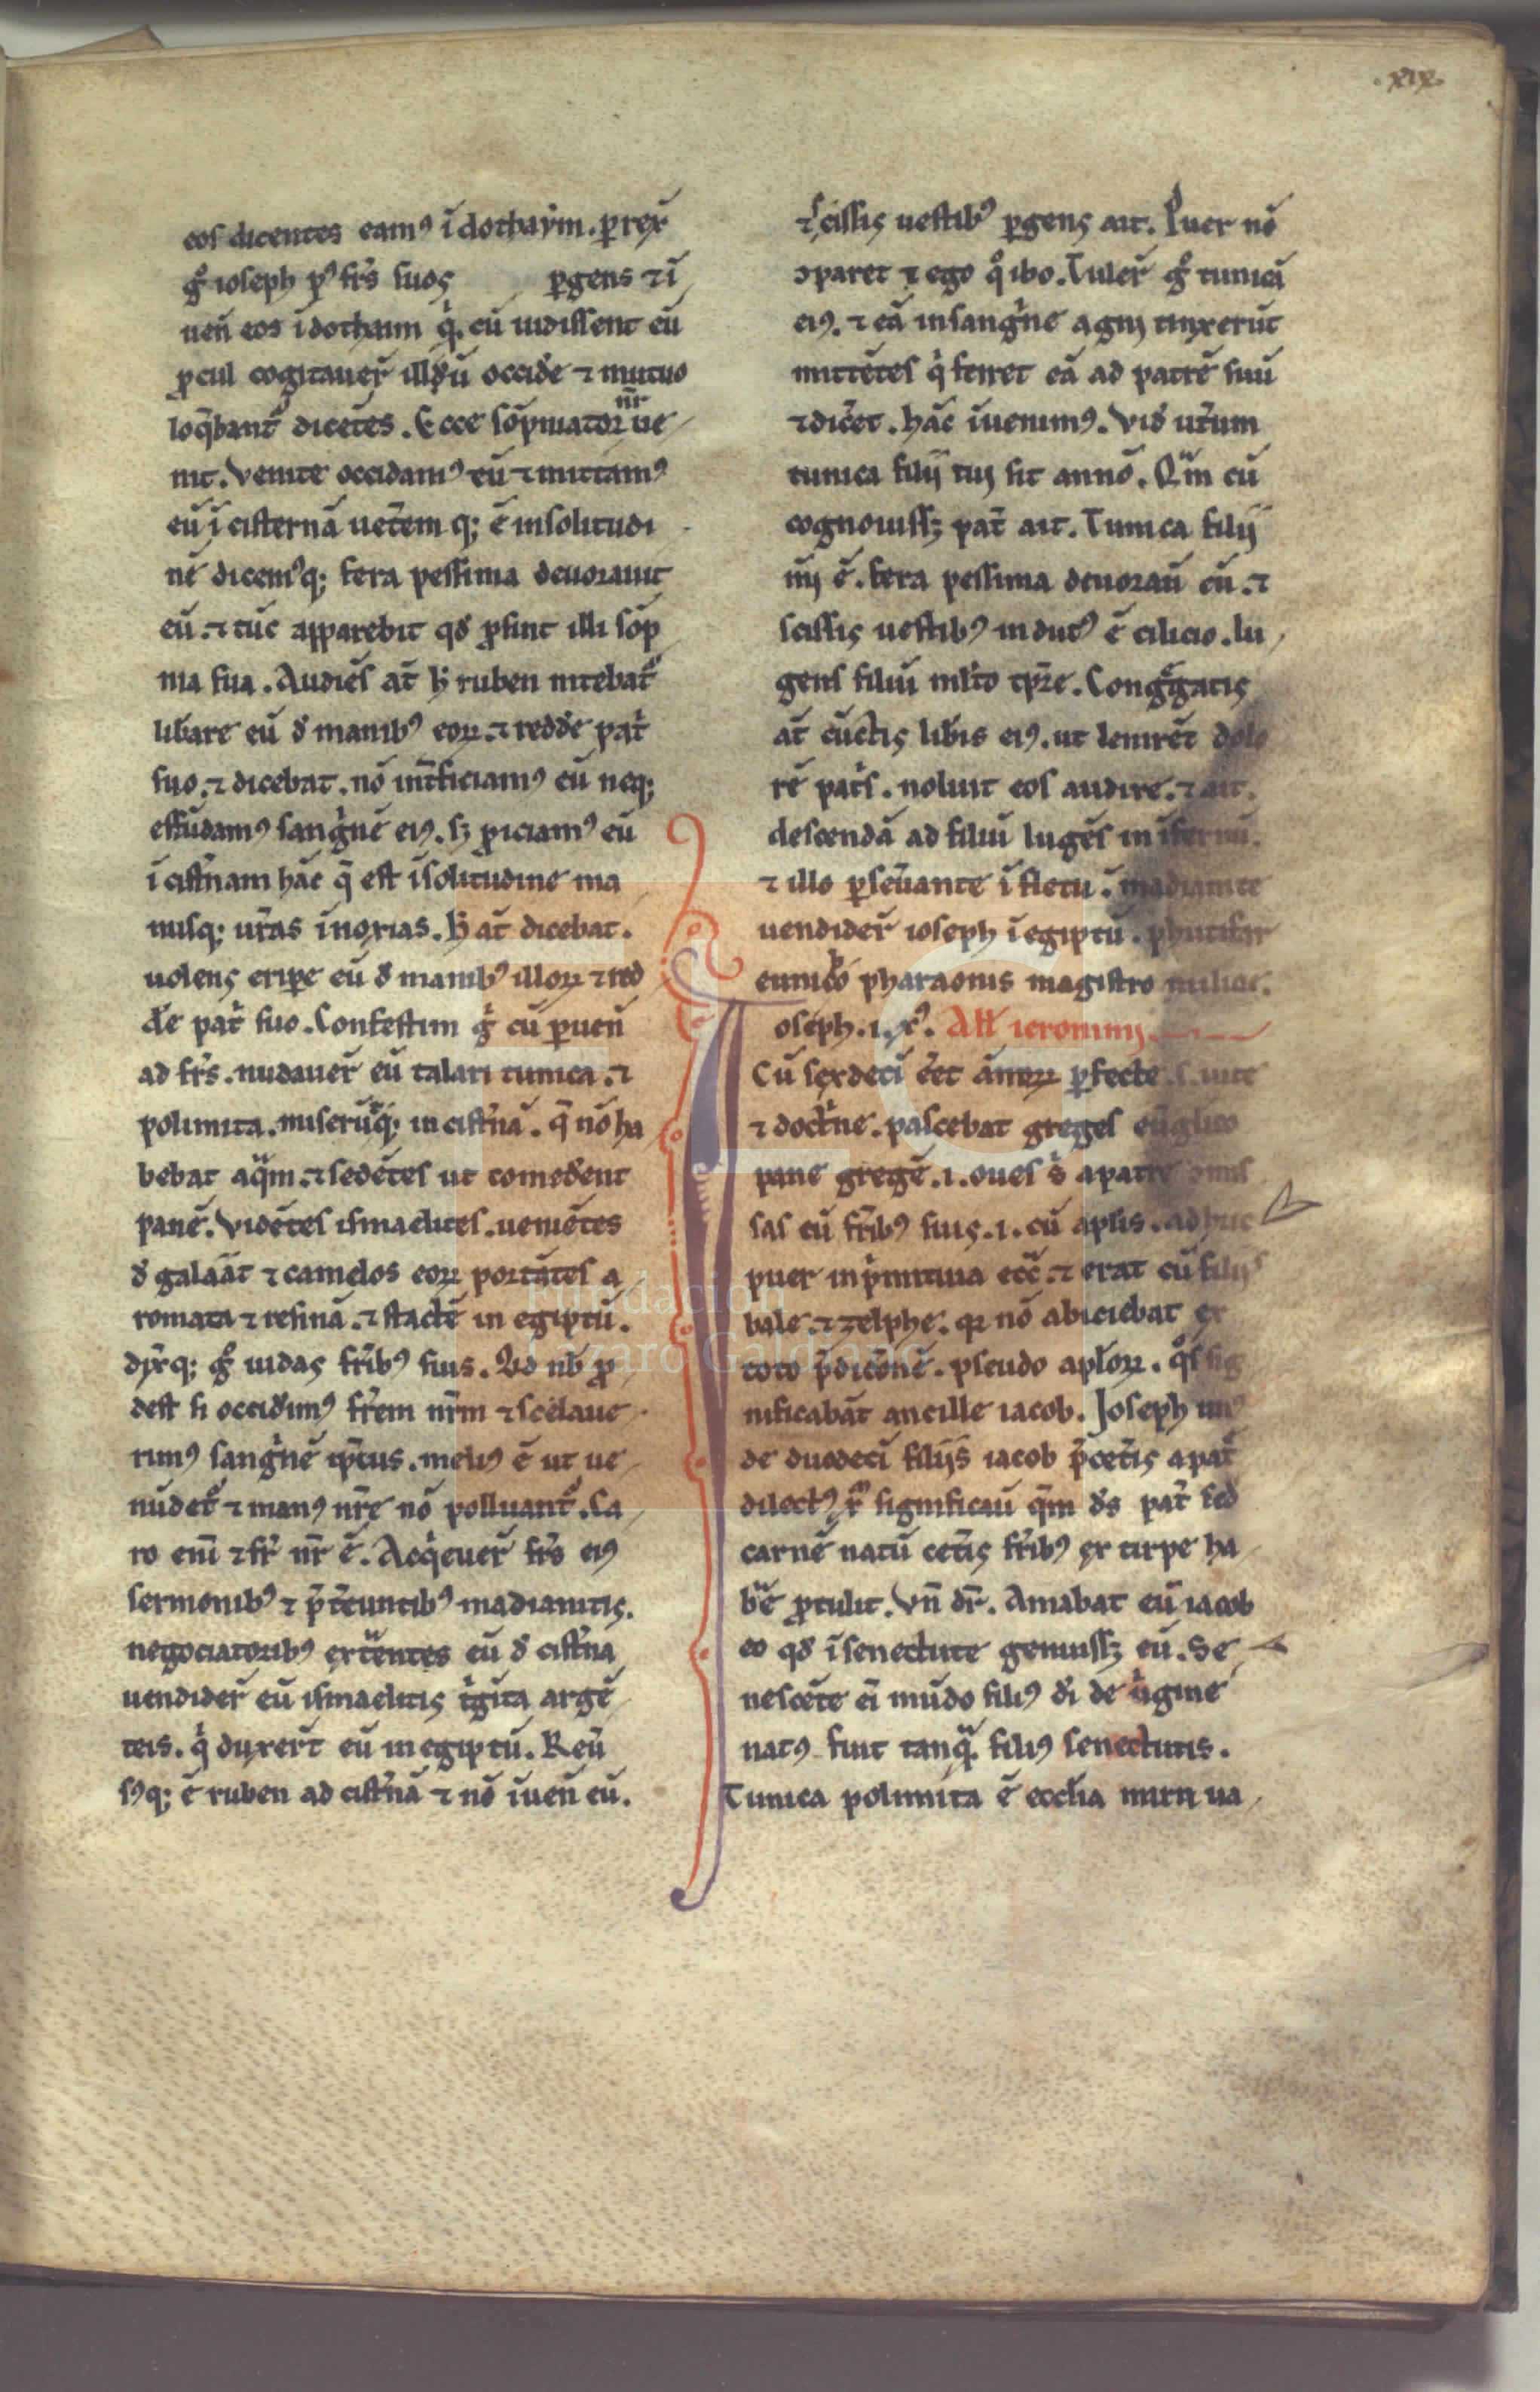 .xix.
eos dicentes eamꝰ ī dothaym. ꝑrex̄
gͦ ioseph pꝰ fr̄s suos ꝑgens ⁊ ī
ueñ eos ī dothaim qͥ. cū uidissent eū
ꝓcul cogitauer̄ illū occid̄e ⁊ mutuo
loq̄banť dicētes. Ecce sōpniator nr̄ ue
nit. Venite occidamꝰ eū ⁊ mittamꝰ
eū ī cisternā uet̄em q; ē in solitudi
ne dicemꝰq; fera pessima deuorauit
eū. ⁊ tūc apparebit qđ ꝓsint illi sōp
nia sua. Audiēs at̄ h̄ ruben nitebať
lib̄are eū đ manibꝰ eoꝝ. ⁊ redd̄e pat̄
suo. ⁊ dicebat. nō int̄ficiamꝰ eū neq;
effūdamꝰ sangͥnē eiꝰ. sꝫ ꝓiciamꝰ eū
ī cist̄nam hāc q̄ est ī solitudine ma
nusq; ur̄as īnoxias. h̄ at̄ dicebat.
uolens eriꝑe eū đ manibꝰ illoꝝ ⁊ red
d̄e pat̄ suo. Confestim gͥ cū ꝑueñ
ad fr̄s. nudauer̄ eū talari tunica. ⁊
polimita. miserūtq; in cist̄nā. q̄ nō ha
bebat aqᵃm. ⁊ sedētes ut comed̄ent
panē. Vidētes ismaelites. ueniētes
đ galaāt ⁊ camelos eoꝝ portātes a
romata ⁊ resinā. ⁊ stactē in egiptū.
dix̄q; gͦ iudas fr̄ibꝰ suis. Qđ nb̄ ꝓ
dest si occid̄imꝰ fr̄em nr̄m ⁊ celaue
rimꝰ sangͥnē ip̄ius. meliꝰ ē ut ue
nūdeť ⁊ manꝰ nr̄e nō polluanť. Ca
ro enī ⁊ fr̄ nr̄ ē. Acqͥeuer̄ fr̄s eiꝰ
sermonibꝰ ⁊ p̄t̄euntibꝰ madianitis.
negociatoribꝰ extᵃentes eū đ cist̄na
uendider̄ eū ismaelitis tͥgīta argē
teis. qͥ duxer̄t eū in egiptū. Reū
sꝰq; ē ruben ad cist̄nā ⁊ nō īueñ eū.
⁊ scissis uestibꝰ ꝑgens ait. Puer nō
ꝯparet ⁊ ego qͦ ibo. Tuler̄ gͦ tunicā
eiꝰ. ⁊ eā in sangͥne agni tinxerūt
mittētes qͥ ferret eā ad patrē suū
⁊ dic̄et. hāc īuenimꝰ. Vid̄ ut̄um
tunica filii tui sit an nō. Qᵃm cū
cognouissꝫ pat̄ ait. Tunica filii
mi ē. fera pessima deuorau̅ eū. ⁊
scissis uestibꝰ indutꝰ ē cilicio. lu
gens filiū ml̄to tp̄re. Congͤgatis
at̄ cūctis lib̄is eiꝰ. ut lenirēt dolo
rē pat̄s. noluit eos audire. ⁊ ait.
descendā ad filiū lugēs in īfernū.
⁊ illo ꝑseu̅ante ī fletu. madianite
uendider̄ ioseph ī egiptū. phutifar
eunucho pharaonis magistro milicie.
Ioseph .i. x̄ꝰ. All̄ ieronimi.
Cū sexdecī ēet ānoꝝ ꝑfecte .s. uite
⁊ doctͥne. pascebat greges
pane gregē .i. oues apatre
sas cū fr̄ibꝰ suis .i. cū aplis. adhuc
puer in pͥmitiua ecc̄. ⁊ erat cū filiis
bale. ⁊ zelphe. qꝛ nō abiciebat ex
toto p̄dicōnē. pseudo apl̄oꝝ. qͦs sig
nificabāt ancille iacob. Joseph unꝰ
de duodecī filiis iacob p̄ cet̄is a pat̄
dilectꝰ x̄m significau̅ qᵃm dš pat̄ sed
carnē natū cet̄is fr̄ibꝰ ex tirpe ha
bᵃe ꝓtulit. Vn̄ dr̄. Amabat eū iacob
eo qđ ī senectute genuissꝫ eū. Se
nescēte eī mūdo filiꝰ dī de uͥgine
natꝰ fuit tanqᵃ. filiꝰ senectutis.
Tunica polimita ē eccl̄ia mira ua
Fundación
Lázaro Galdiano